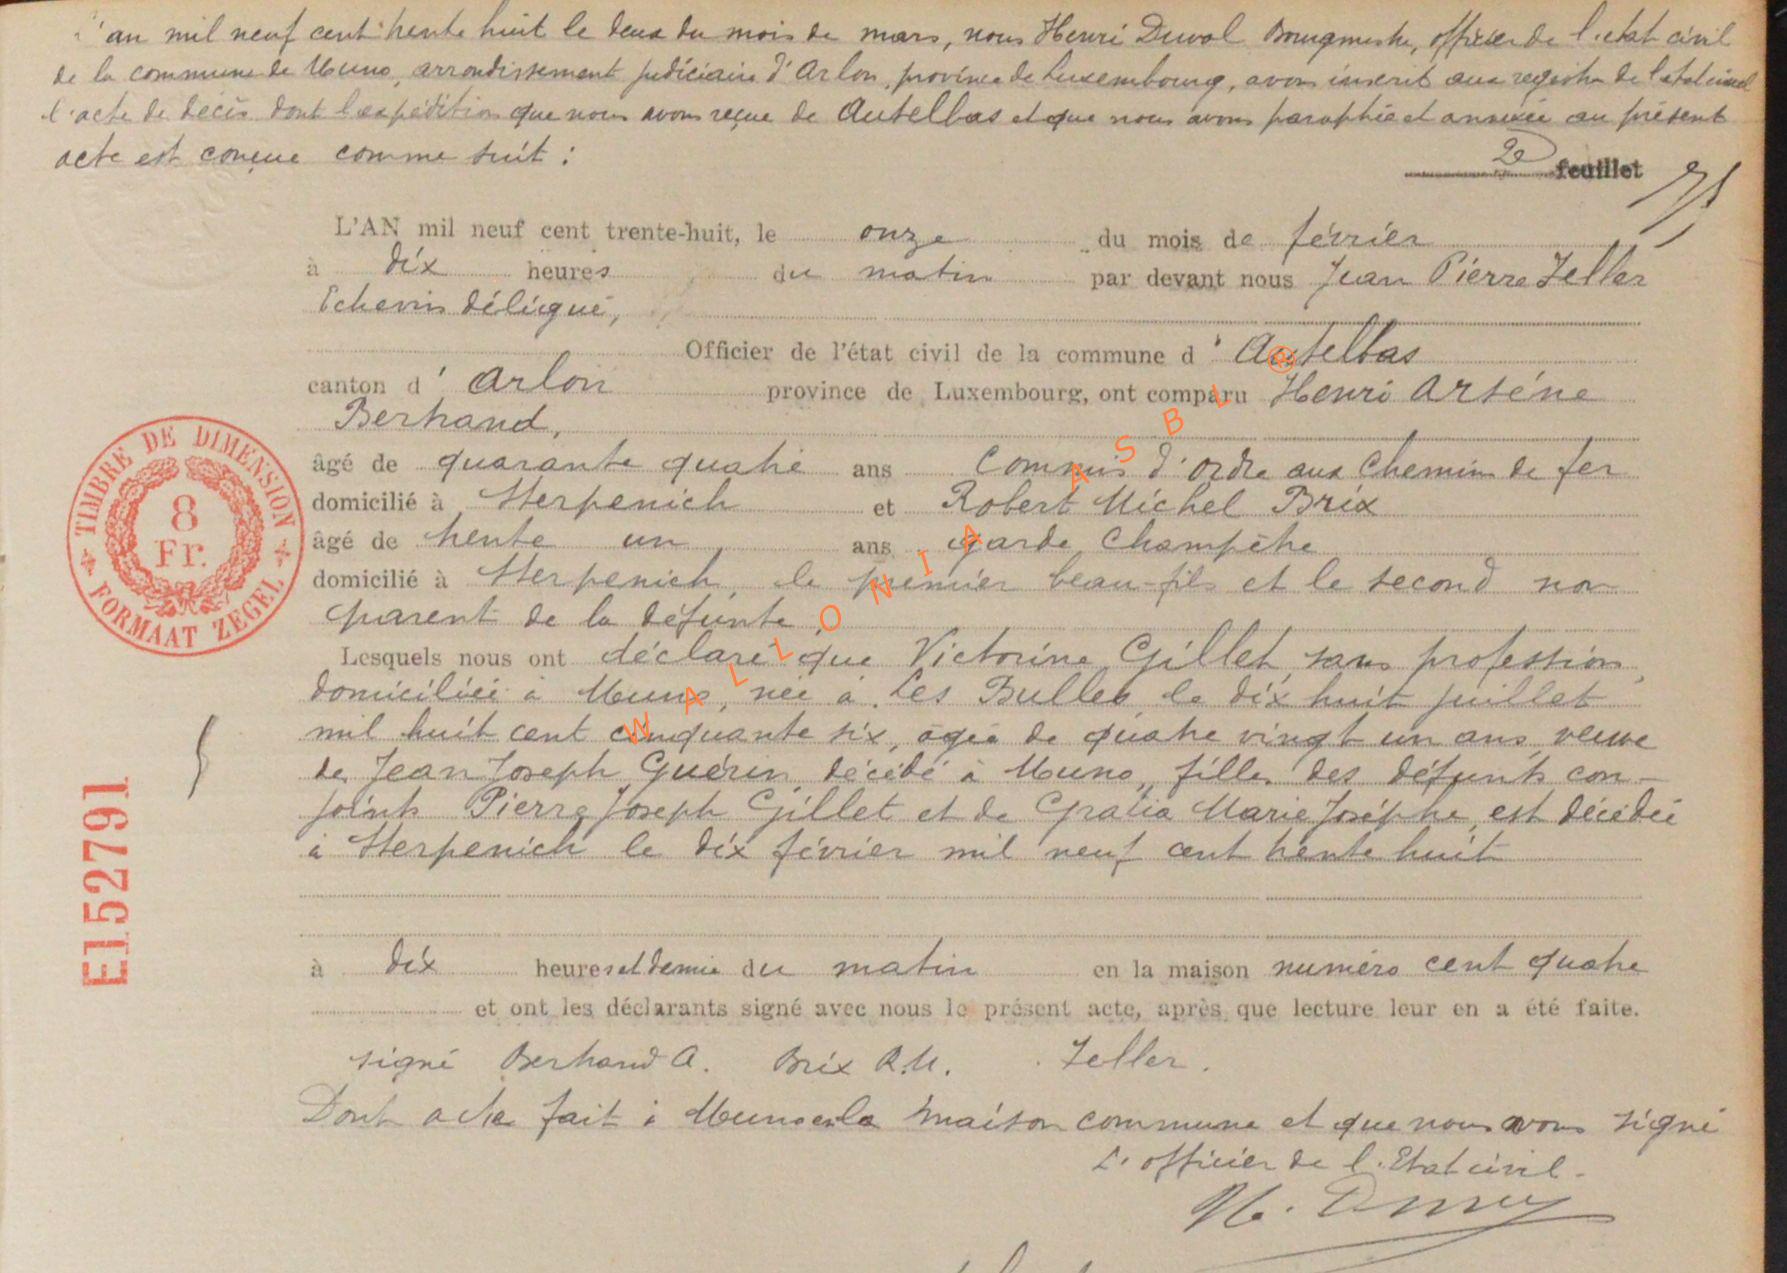 L'an mil neuf cent trente huit le deux du mois de mars, nous Henri Duval Bourgmestre, officier de l'état civil
de la commune de Muno, arrondissement judiciaire d'Arlon, province de Luxembourg, avons inscrit aux registre de l'état civil
l'acte de décès dont l'expédition que nous avons reçue de Autelbas et que nous avons paraphée et annexée au présent
acte est conçue comme suit :
2e feuillet
L'AN mil neuf cent trente-huit, le onze du mois de février
à dix heures du matin par devant nous Jean Pierre Zeller
Echevin délégué,
Officier de l'état civil de la commune d' Autelbas
canton d' Arlon province de Luxembourg, ont comparu Henri Arsène
Bertrand,
âgé de quarante quatre ans Commis d'ordre aux Chemins de fer
domicilié à Sterpenich et Robert Michel Brix
âgé de trente un ans garde Champêtre
domicilié à Sterpenich, le premier beau-fils et le second non
parent de la défunte,
Lesquels nous ont déclaré que Victorine Gillet, sans profession,
domiciliée à Muno, née à Les Bulles, le dix huit juillet
mil huit cent cinquante six, agée de quatre vingt un ans, veuve
de Jean Joseph Guérin, décédé à Muno, fille des défunts con-
joints Pierre Joseph Gillet et de Gratia Marie Josèphe, est décédée
à Sterpenich le dix février mil neuf cent trente huit
à dix heures et demie du matin en la maison numéro cent quatre
et ont les déclarants signé avec nous le présent acte, après que lecture leur en a été faite.
signé Bertrand A. Brix R.M. Zeller.
Dont acte fait à Muno en la maison commune et que nous avons signé
L'officier de l'Etat civil.
TIMBRE DE DIMENSION
8
Fr.
FORMAAT ZEGEL
E152791
WALLONIA ASBL ®